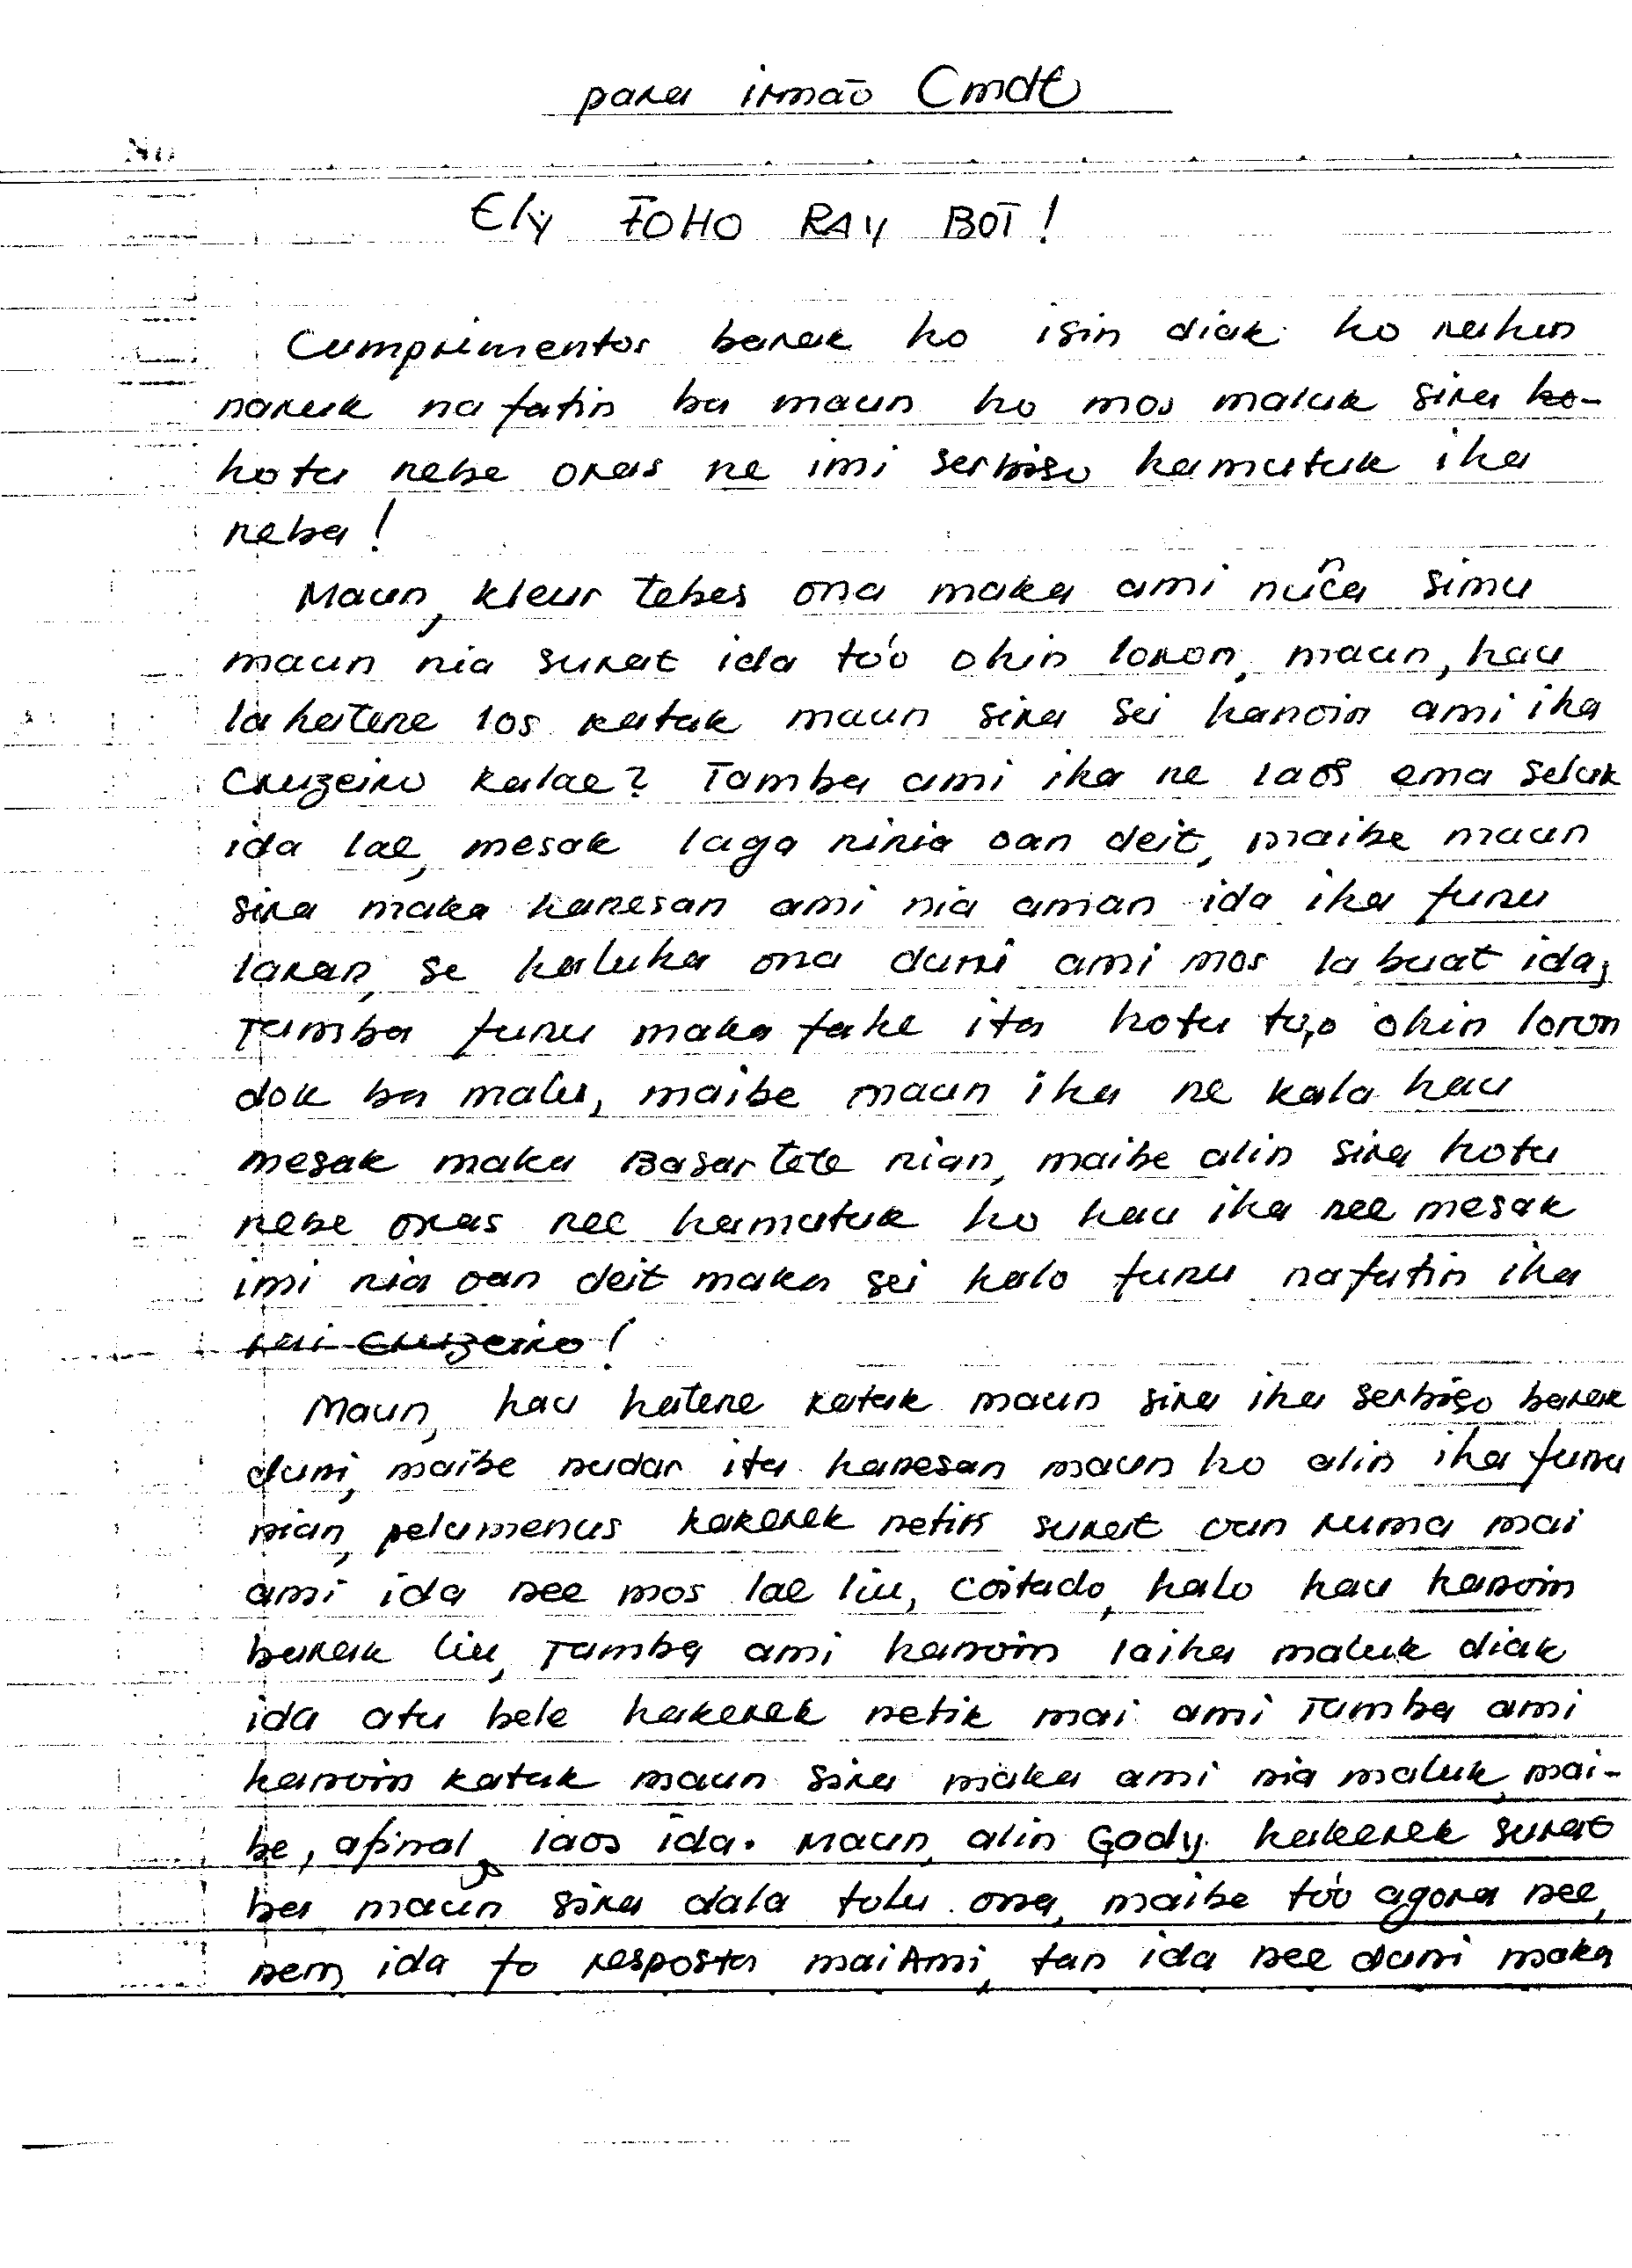 para irmão Cmdt
No.
Ely FOHO RAY BOT!
Cumprimentos barak ho isin diak ho rahun
naruk nafatin ba maun ho mos maluk sira ho-
hotu nebe oras ne imi serbiso hamutuk iha
neba!
Maun, kleur tebes ona maka ami nuca simu
maun nia surat ida tóo ohin loron, maun, hau
la hatene los katak maun sira sei hanoin ami iha
Cruzeiro kalae? Tamba ami iha ne laos ema seluk
ida lae, mesak laga ninia oan deit, maibe maun
sira maka hanesan ami nia aman ida iha funu
laran, se haluha ona duni ami mos la buat ida,
Tamba funu maka fahe ita hotu tóo ohin loron
dok ba malu, maibe maun iha ne kala hau
mesak maka Basartete nian, maibe alin sira hotu
nebe oras nee hamutuk ho hau iha nee mesak
imi nia oan deit maka sei halo funu nafatin iha
rai Cruzeiro!
Maun, hau hatene katak maun sira iha serbiso barak
duni, maibe nudar ita hanesan maun ho alin iha funu
nian, pelumenus hakerek netik surat oan ruma mai
ami ida nee mos lae liu, coitado, halo hau hanoin
barak liu, Tamba ami hanoin laiha maluk diak
ida atu bele hakerek netik mai ami Tamba ami
hanoin katak maun sira maka ami nia maluk, mai-
be, afinal, laos ida. Maun, alin Gody hakerek surat
ba maun sira dala tolu ona, maibe tóo agora nee,
nem ida fo resposta mai Ami, tan ida nee duni maka